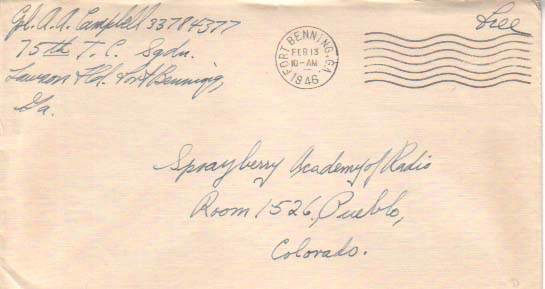 Cpl. A. A. Campbell 33784377
75th T. C. Sqdn.
Lawson Fld. Fort Benning,
Ga.
FORT BENNING, GA.
FEB 13
10-AM
1946
Free
Sprayberry Academy of Radio
Room 1526, Pueblo,
Colorado.